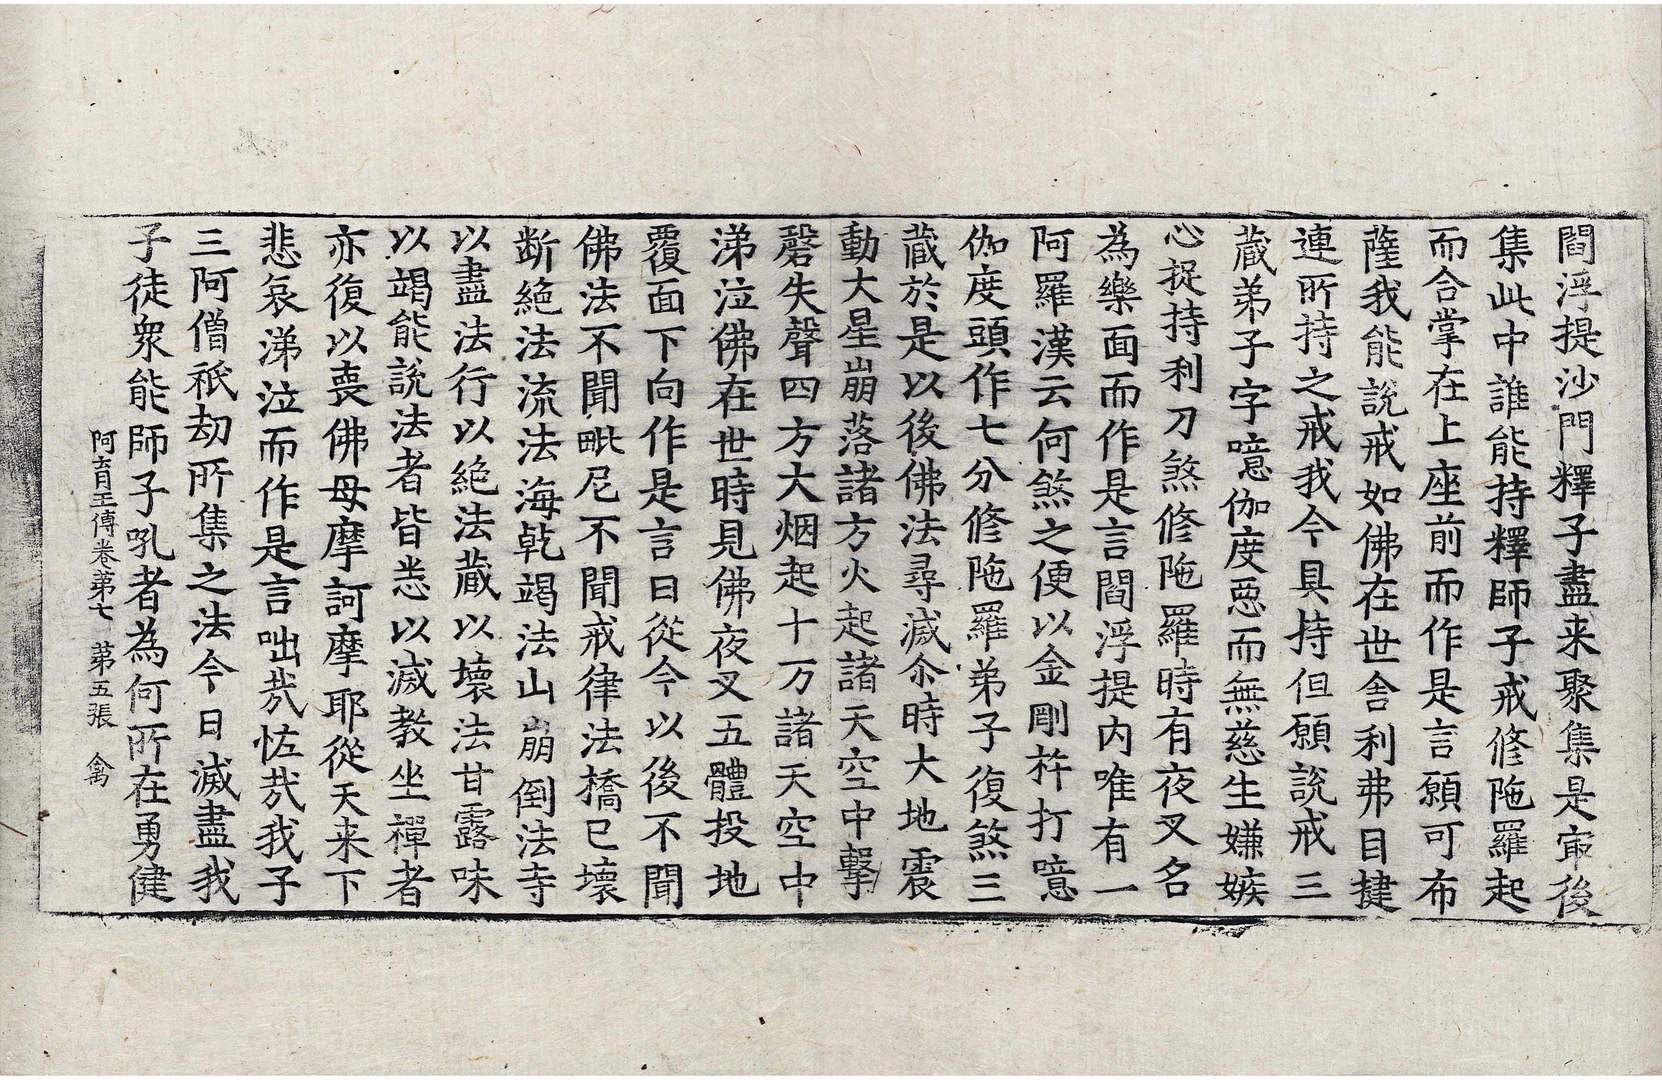 閻浮提沙門釋子盡来聚集是㝡後
集此中誰能持釋師子戒修陁羅起
而合掌在上座前而作是言願可布
薩我能說戒如佛在世舍利弗目揵
連所持之戒我今具持但願說戒三
蔵弟子字噫伽度惡而無慈生嫌嫉
心捉持利刀煞修陁羅時有夜叉名
為樂面而作是言閻浮提內唯有一
阿羅漢云何煞之便以金剛杵打噫
伽度頭作七分修陁羅弟子復煞三
蔵於是以後佛法尋滅尒時大地震
動大星崩落諸方火起諸天空中擊
磬失聲四方大烟起十万諸天空中
涕泣佛在世時見佛夜叉五體投地
覆面下向作是言曰從今以後不聞
佛法不聞毗尼不聞戒律法橋已壞
断絕法流法海乾竭法山崩倒法寺
以盡法行以絕法蔵以壞法甘露味
以竭能說法者皆悉以滅教坐禪者
亦復以喪佛母摩訶摩耶從天来下
悲哀涕泣而作是言咄㢤恠㢤我子
三阿僧祇劫所集之法今日滅盡我
子徒衆能師子吼者為何所在勇健
阿育王傳卷第七　第五張　禽